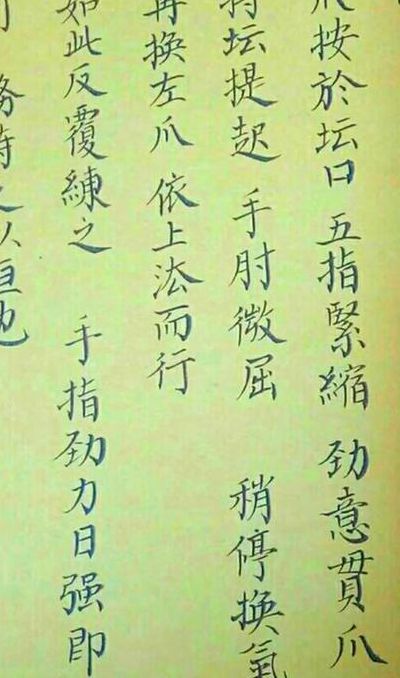 爪按於坛口 五指緊縮 劲意貫爪
将坛提起 手肘微屈 稍停換氣
再換左爪 依上法而行
如此反覆練之 手指劲力日强即
務持之以恒也